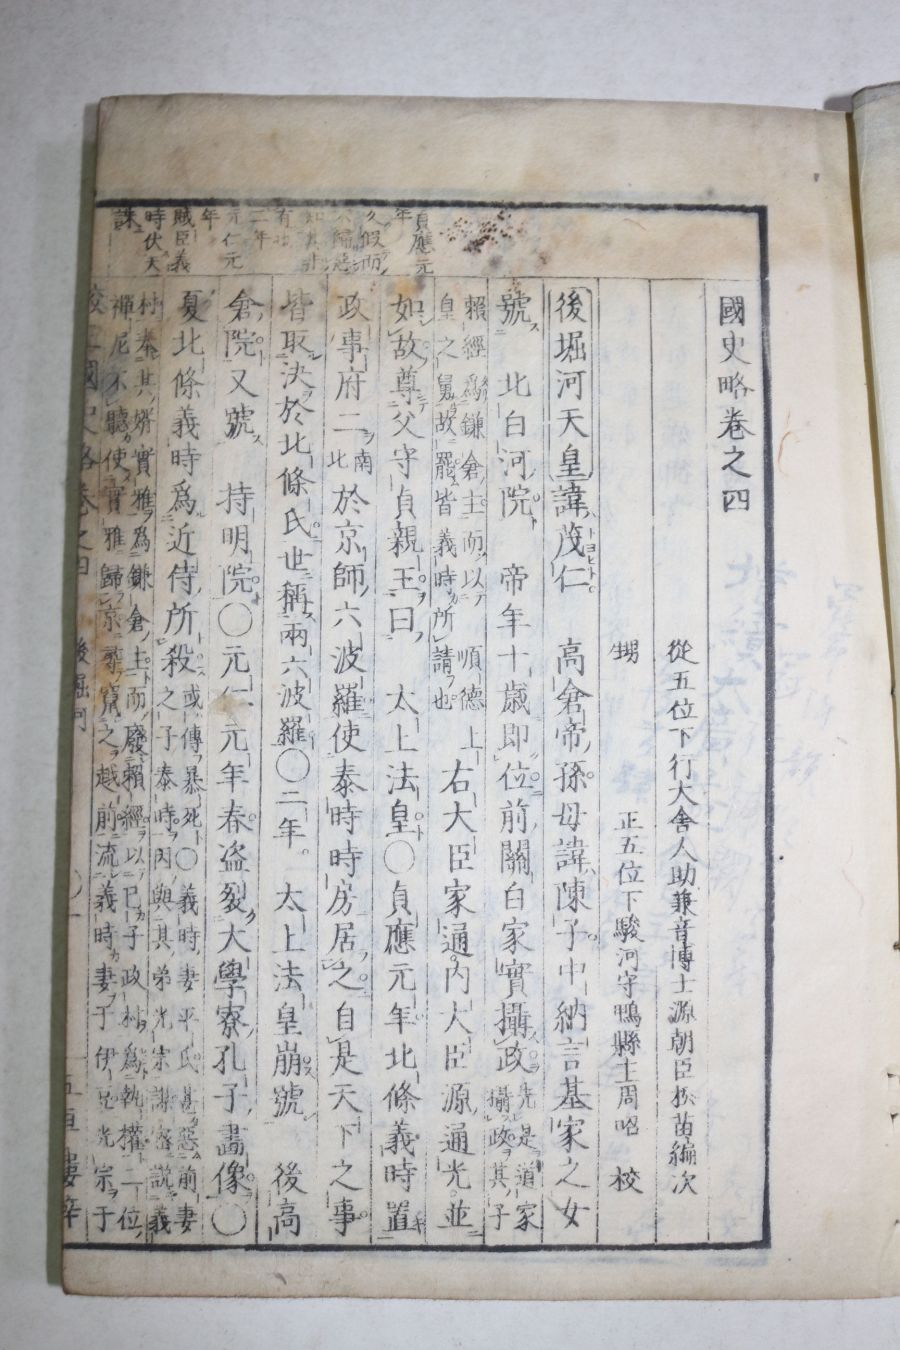 國史略卷之四
從五位下行大舍人助兼音博士源朝臣松苗編次
甥 正五位下駿河守鴨縣主周 校
後堀河天皇諱茂仁 高倉帝孫母諱陳子中納言基家之女
號 北白河院 帝年十歲即位前關白家實攝政先是道家攝政其子
賴經爲鎌倉主而以 順德上皇之舅故罷皆義時所請也 右大臣家通內大臣源通光並
如故尊父守貞親王曰 太上法皇○貞應元年北條義時置
政事府二南北於京師六波羅使泰時時房居之自是天下之事
皆取決於北條氏世稱兩六波羅○二年 太上法皇崩號 後高
倉院又號 持明院○元仁元年春盗裂大學寮孔子畵像○
夏北條義時爲近侍所殺或傳暴死○義時妻平氏甚惡前妻之子泰時因與其弟光宗謀密說義
村奉其婿實雅爲鎌倉主而廢賴經以己子政村爲執權二位禪尼不聽使實雅歸京尋竄之越前流義時妻于伊豆光宗于
國史略卷之四 後堀河
貞應元年
二年
元仁元年
賊臣義時伏天誅